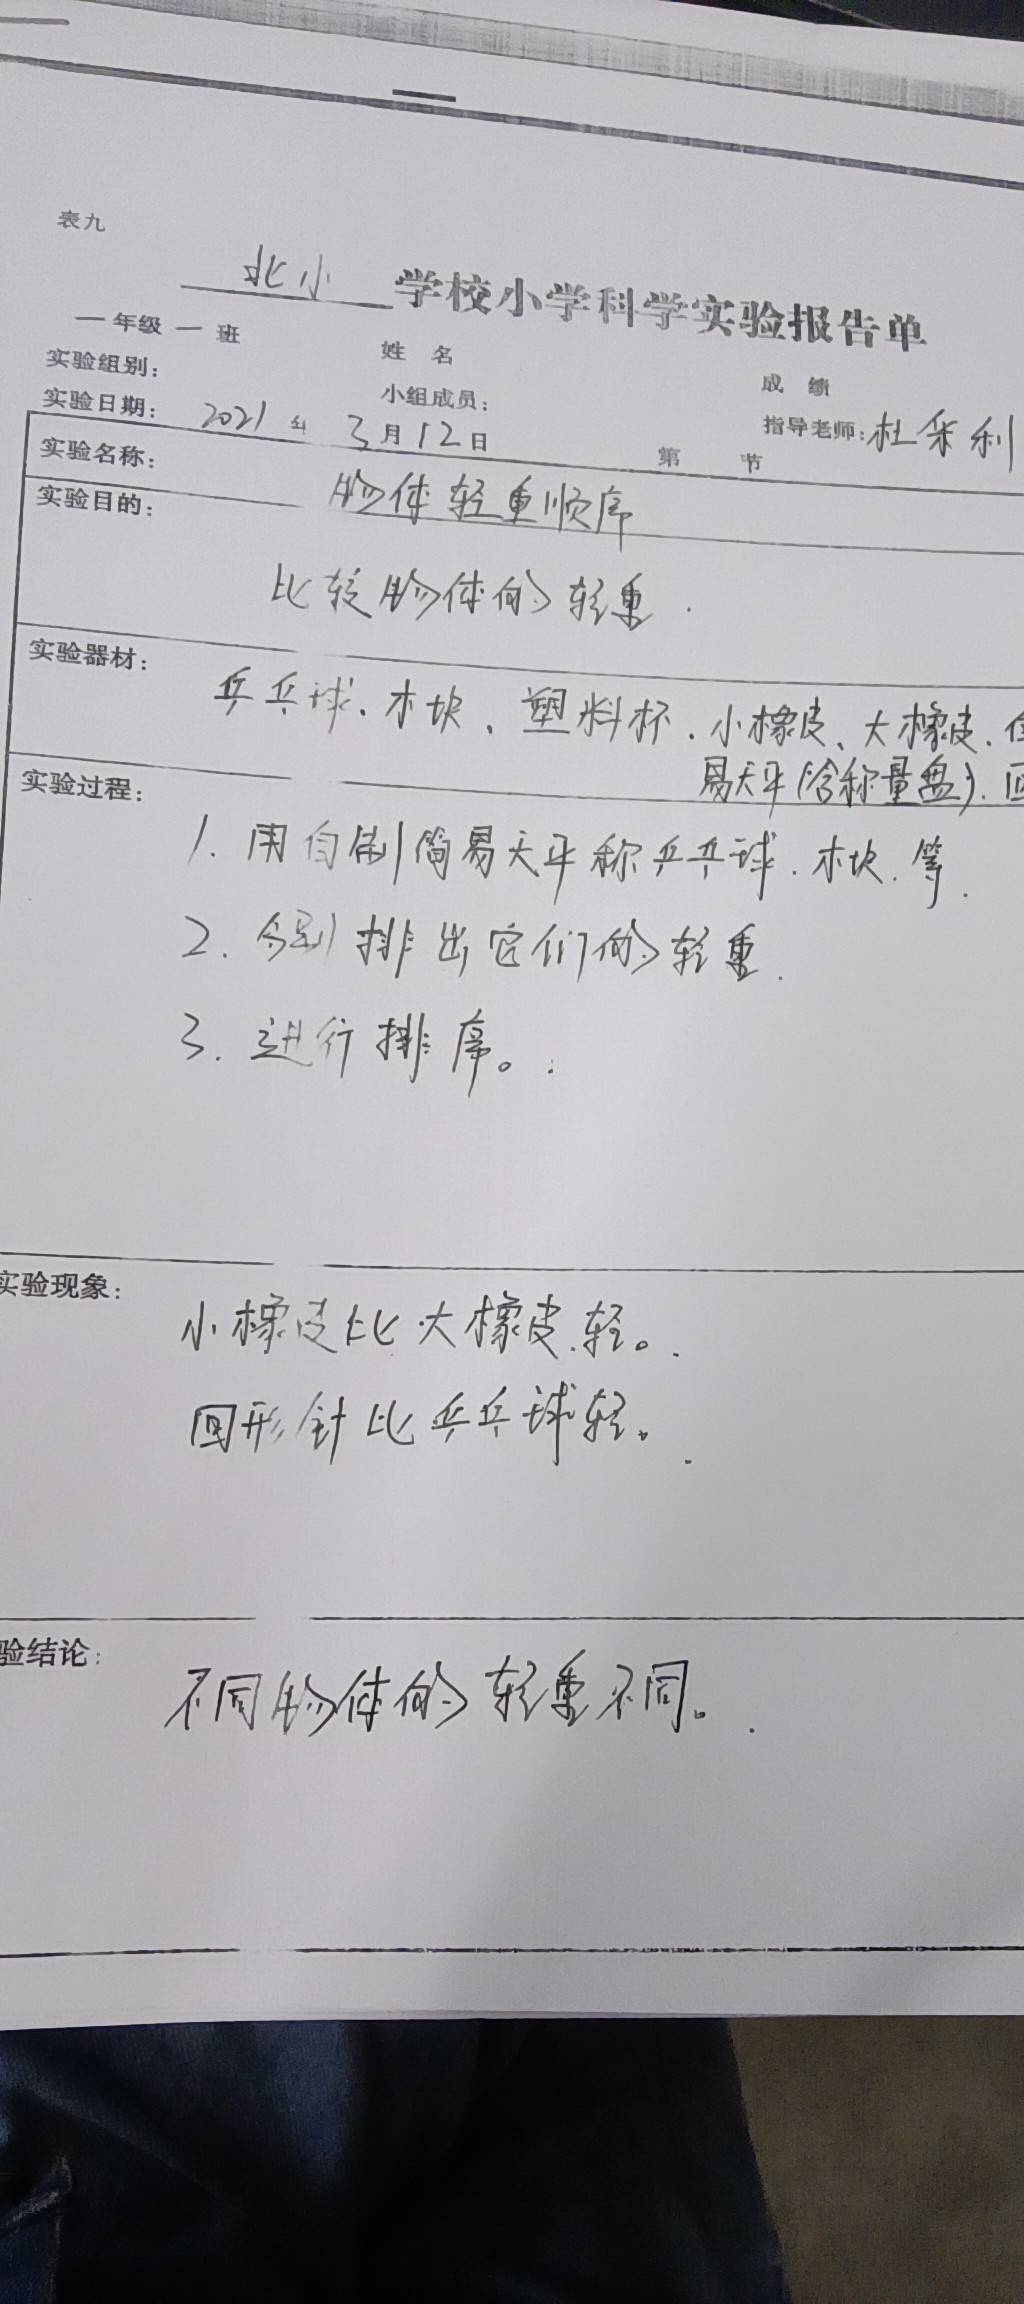 表九
北小 学校小学科学实验报告单
一年级 一 班 姓 名 成 绩
实验组别: 小组成员: 指导老师:杜采利
实验日期: 2021年 3月12日 第 节
实验名称: 物体轻重顺序
实验目的:
比较物体的轻重.
实验器材: 乒乓球、木块、塑料杯、小橡皮、大橡皮、
易天平(含称量盘)、回
实验过程:
1. 用自制简易天平称乒乓球、木块、等.
2. 分别排出它们的轻重.
3. 进行排序。
实验现象: 小橡皮比大橡皮轻。
回形针比乒乓球轻。
验结论: 不同物体的轻重不同。